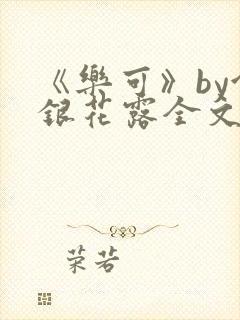 《樂可》by
銀花露全文
荣若